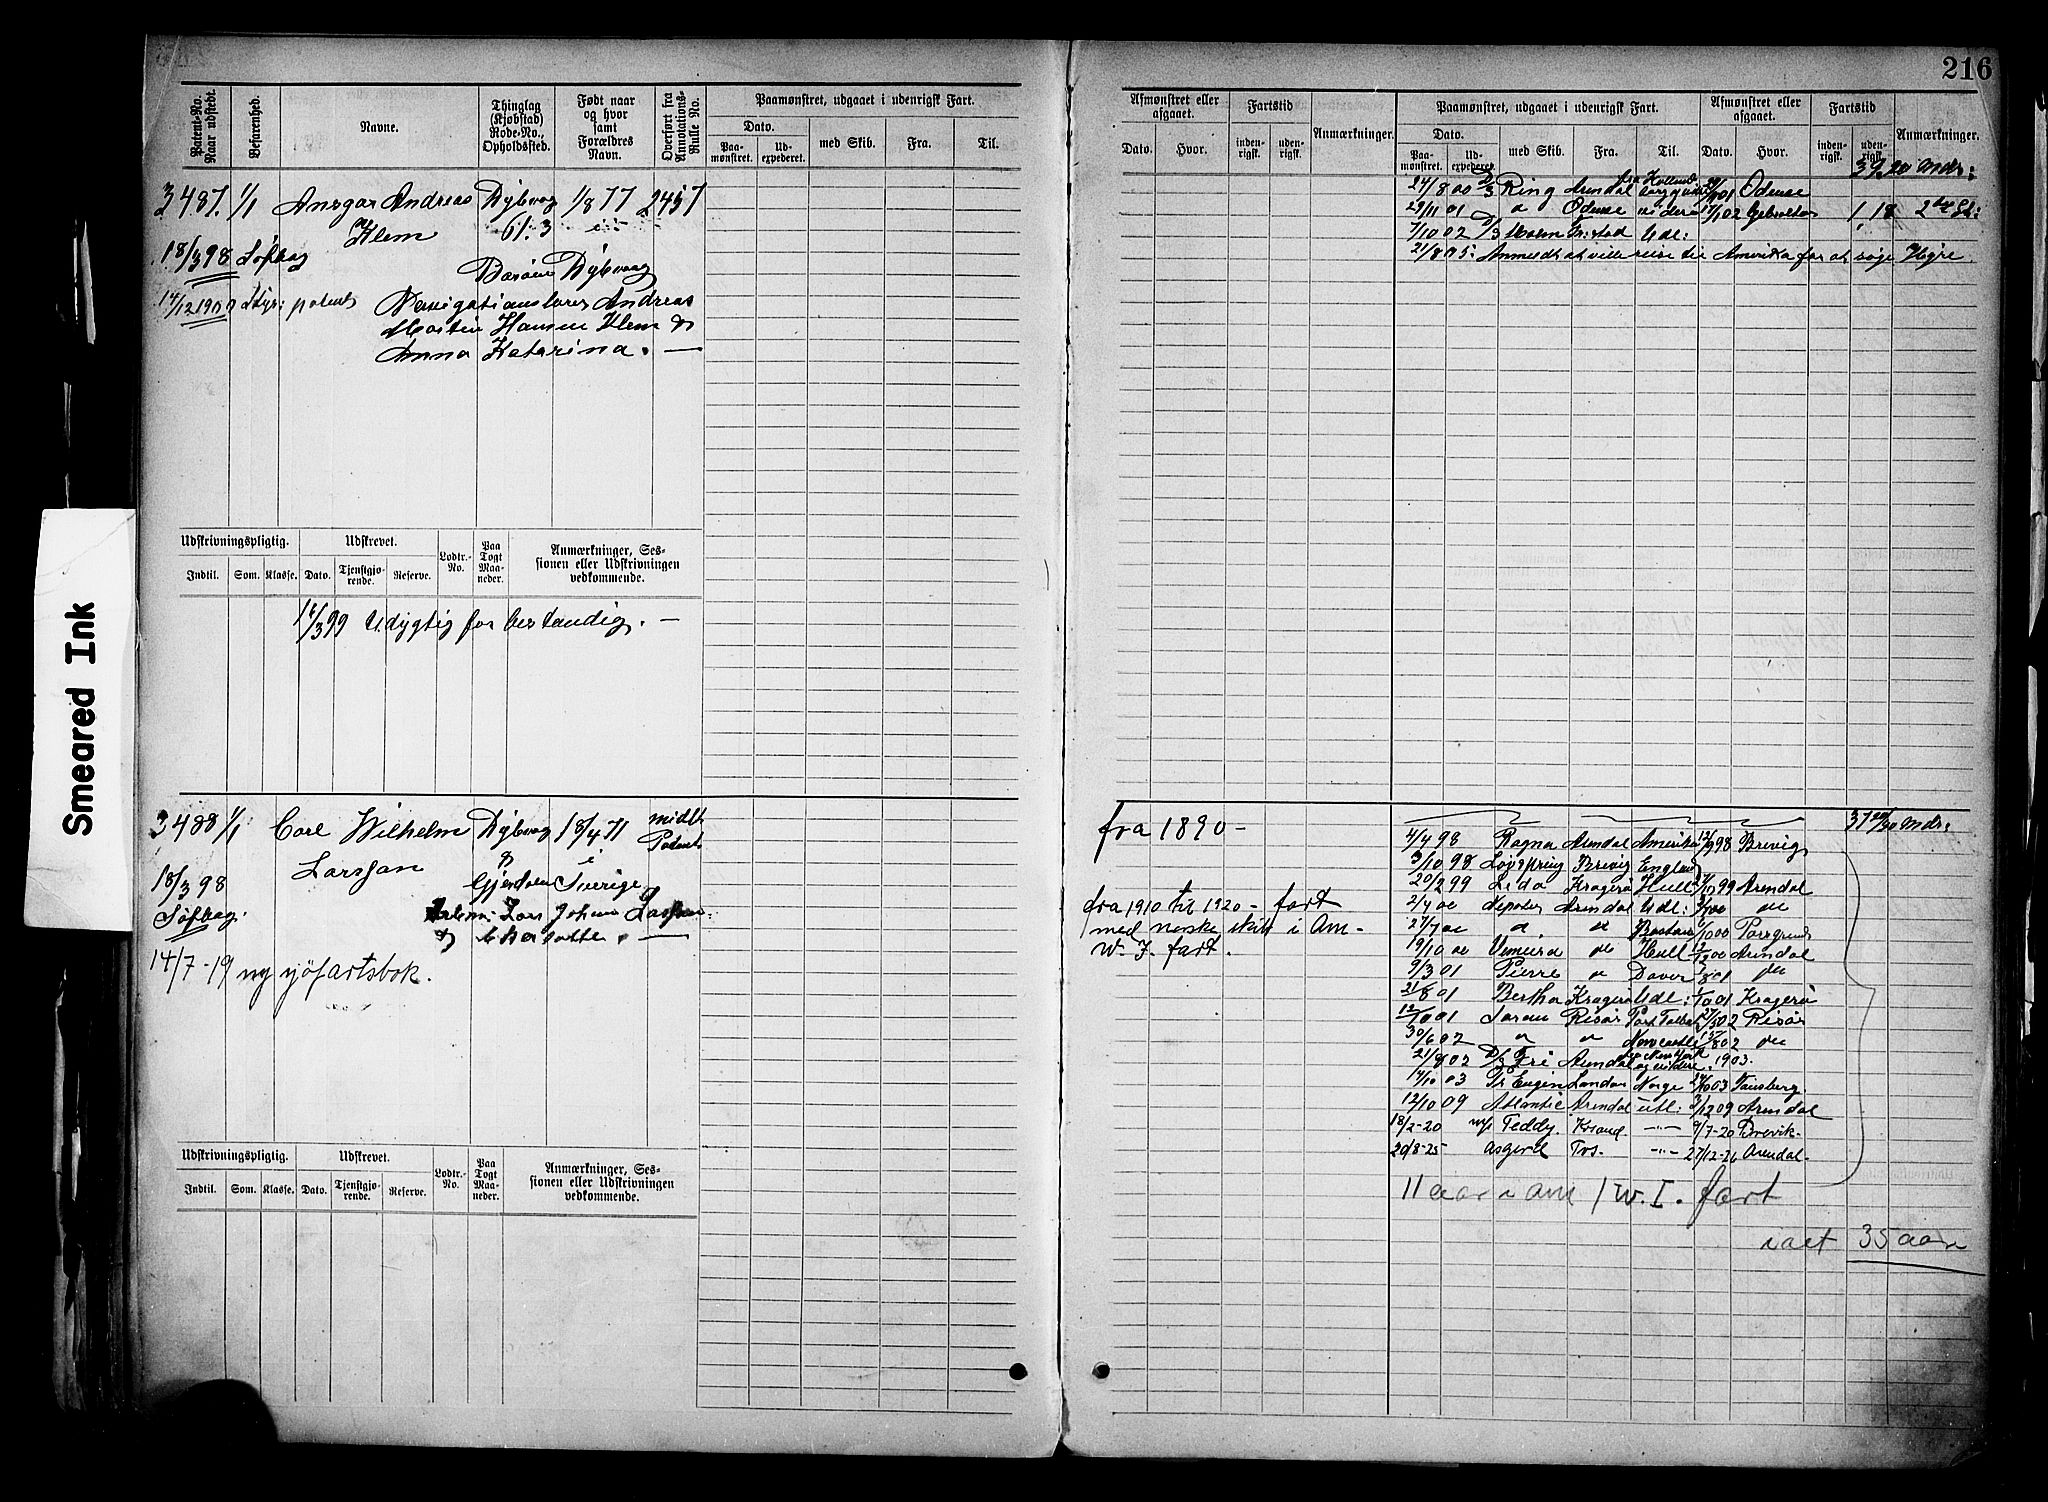 216
Patent-No. Naar udstedt.
Befarenhed.
Navne.
Thinglag (Kjøbstad) Rode-No., Opholdssted.
Født naar og hvor samt Forældres Navn.
Overført fra Annotations-Rulle No.
Paamønstret, udgaaet i udenrigsk Fart.
Dato.
Paamønstret.
Udexpederet.
med Skib.
Fra.
Til.
3487. 1/1 Ansgar Andreas Dybvaag 1/8 77 2457
Klem 61.3
18/3 98 Søfbog
Dybvaag
14/12 1900 Styr: patent Navigationslærer Andreas
Martin Hansen Klem &
Anna Katarina. —
Udskrivningspligtig.
Udskrevet.
Lodtr.-No.
Paa Togt Maaneder.
Anmærkninger, Sessionen eller Udskrivningen vedkommende.
Indtil.
Som.
Klasse.
Dato.
Tjenstgjørende.
Reserve.
/3 99 Udygtig for bestandig. —
3488 1/1 Carl Wilhelm Dybvaag 18/4 71 midlt
Larssan & i Patent
18/3 98 Sverige
Søfbog. Lars Johan
& Charlotte. —
14/7-19 ny sjöfartsbok.
Udskrivningspligtig.
Udskrevet.
Lodtr.-No.
Paa Togt Maaneder.
Anmærkninger, Sessionen eller Udskrivningen vedkommende.
Indtil.
Som.
Klasse.
Dato.
Tjenstgjørende.
Reserve.
Afmønstret eller afgaaet.
Fartstid
Anmærkninger.
Paamønstret, udgaaet i udenrigsk Fart.
Afmønstret eller afgaaet.
Fartstid
Anmærkninger.
Dato.
Hvor.
indenrigsk.
udenrigsk.
Dato.
Paamønstret.
Udexpederet.
med Skib.
Fra.
Til.
Dato.
Hvor.
indenrigsk.
udenrigsk.
39.20 Mndr:
24/8 00 D/S Ring Arendal 01 Odense
29/11 01 " Odense 17/1 02 1,18 2den St:
7/10 02 D/S Udl:
21/8 05: Anmeldt at ville reise til Amerika for at søge Hyre
fra 1890 —
fra 1910 til 1920 - fart
med norske skib i Am-
W. I. fart.
37 20/30 Mdr:
4/4 98 Ragna Arendal Amerika 12/9 98 Brevig
3/10 98 Løvspring Brevig England
20/2 99 Lida Kragerø Hull 10 99 Arendal
2/4 00 Neptun Arendal Udl: 00 do
27/7 00 " " Boston 10 00 Porsgrund
19/10 00 do Hull 12 00 Arendal
9/3 01 Pierre " Dover 8 01 do
21/8 01 Bertha Kragerø Udl: 10 01 Kragerø
12/10 01 Risør Port Talbot 27/5 02 Risør
30/6 02 " " Newcastle 8 02 do
21/8 02 D/S Fri Arendal New York og videre 1903.
14/10 03 Pr Eugen London Norge 03 Tønsberg
12/10 09 Atlantic Arendal utl: 3/12 09 Arendal
18/2-20 m/s Teddy. Krsand. —"— 9/7-20 Brevik-
20/8-25 Asgerd Tvs. —"— 27/12-26 Arendal.
11 aar i am / W. I. fart
ialt 35 aar
Smeared Ink